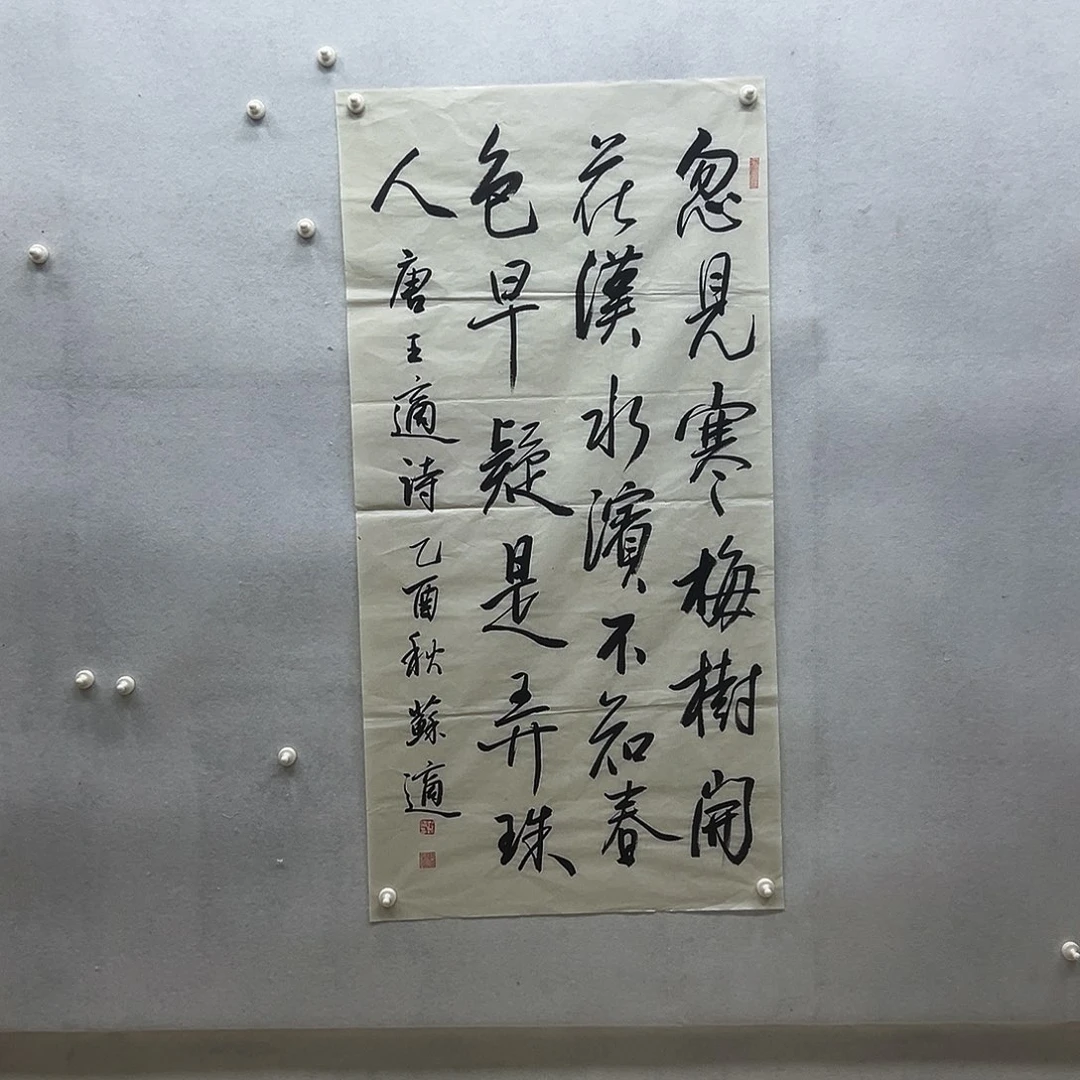 忽見寒梅樹開
花漢水濱不知春
色早疑是弄珠
人
唐王適诗乙酉秋蘇適